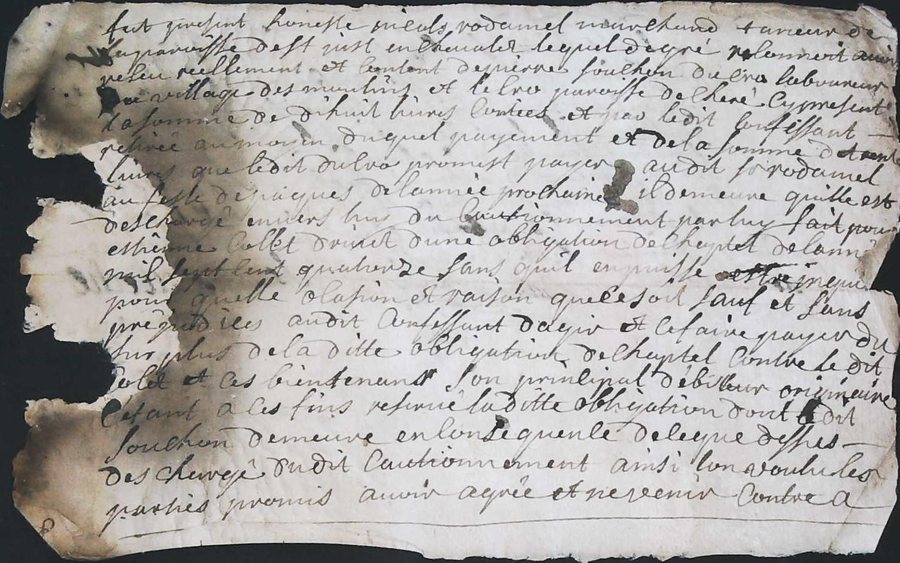 fut present honeste nicols rodamel marchand taneur de
la paroisse de st just en chevalet lequel de gré reconnoit avoir
receu reellement et contant de pierre souchon du cro laboureur
du village des moulins et le cro paroisse de cheré cy present
la somme de dixhuit livres contées et par ledit confessant
retirée au moien duquel payement et de la somme de trente
livres que ledit du cro promest payer audit sr rodamel
au feste de paques de lannée prochaine il demeure quitte est
deschargé envers luy du cautionnement par luy fait pour
estienne collet driuit dune obligation de cheptel de lanné
mil sept cent quatorze sans quil en puisse estre inquie
pour quelle ocasion et raison que ce soit sauf et sans
prejudices audit confessant dagir et ce faire payer du
surplus de la ditte obligation de cheptel contre le dit
colet et ces bientenans son principal debiteur originaire
cetant a ces fins reservé la ditte obligation dont ledit
souchon demeure en consequence de le que desses
deschergé du dit cautionnement ainsi lon voulu les
parties promis avoir agrée et ne venir contre a